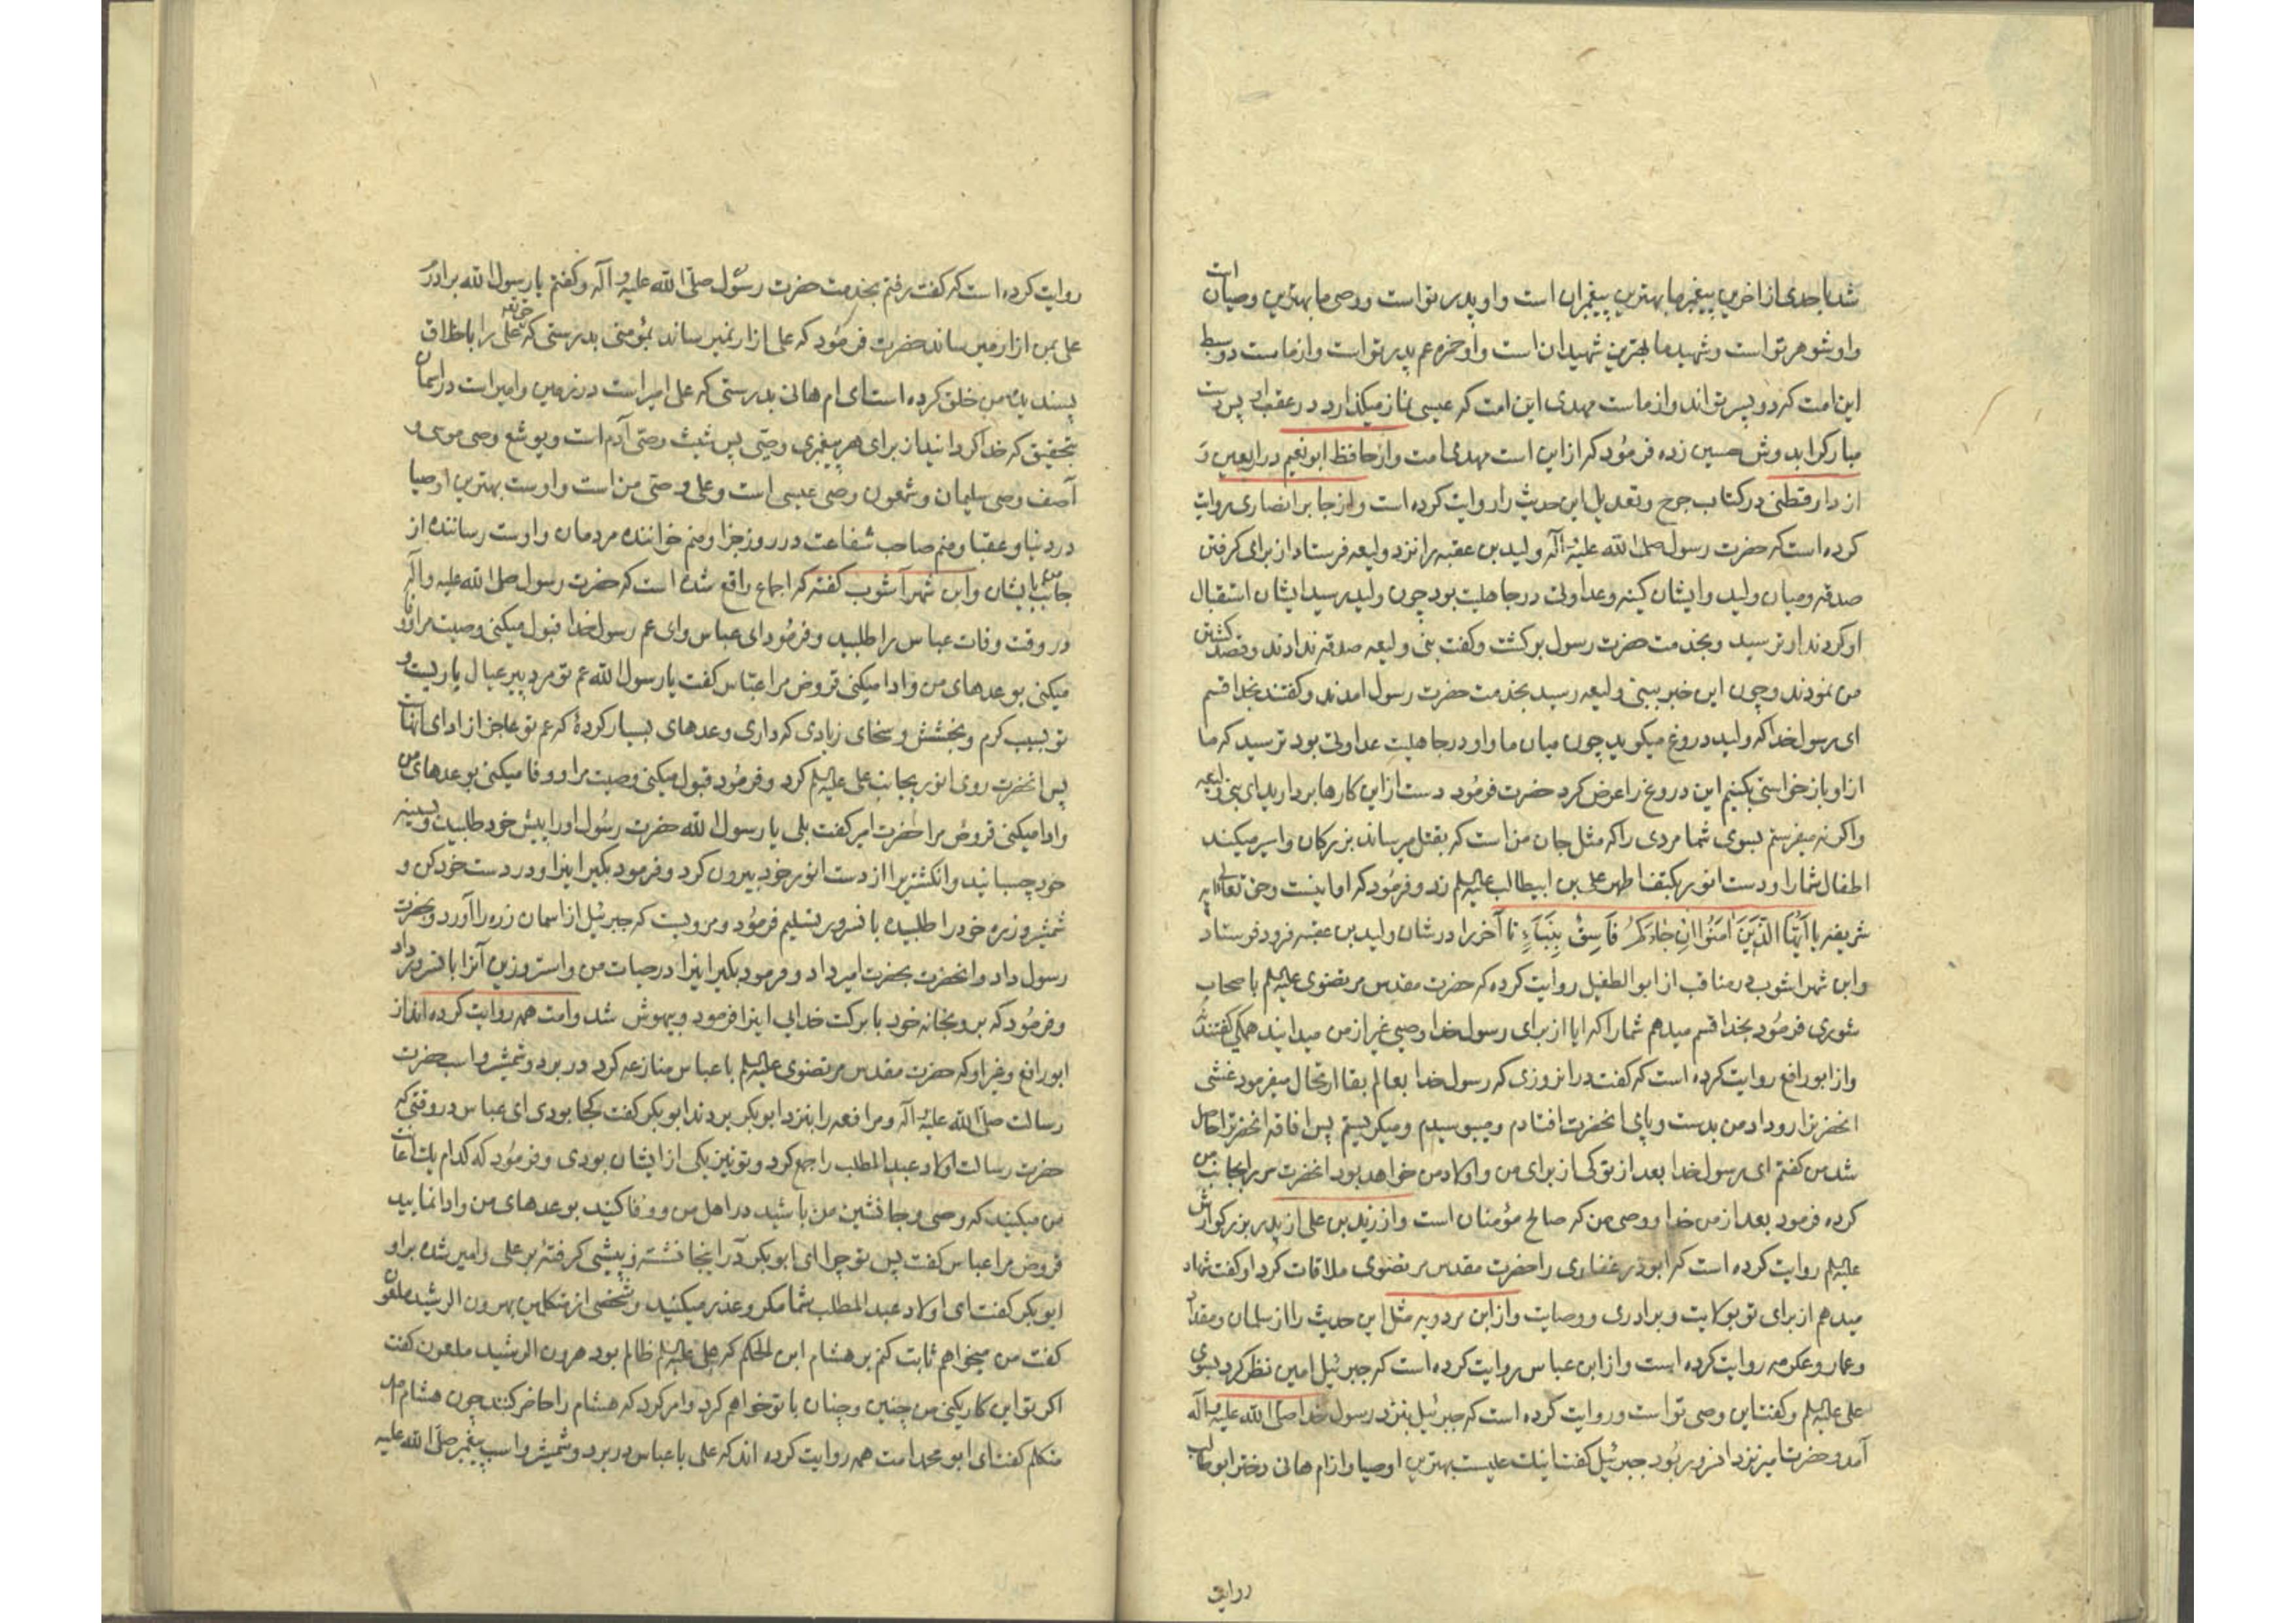 شد با جدی از اخرین پیغمبر ما بهترین پیغمبران است و او پدر تو است و وصی ما بهترین وصیان است
و او شوهر تو است و شهید ما بهترین شهیدان است و او حمزه عم پدر تو است و از ماست دو سبط
این امت که دو پسر تو اند و از ماست مهدی این امت که عیسی نماز میکذارد در عقب او پس دست
مبارک را بدوش حسین زده فرمود که از این است مهدی امت و از حافظ ابو نعیم در اربعین و
از دار قطنی در کتاب جرح و تعدیل این حدیث را روایت کرده است و از جابر انصاری روایت
کرده است که حضرت رسول صلی الله علیه و آله ولید بن عقبه را نزد ولیعه فرستاد از برای کرفتن
صدقه و میان ولید و ایشان کینه و عداوتی در جاهلیت بود چون ولید رسید ایشان استقبال
او کردند او ترسید و بخدمت حضرت رسول برکشت و کفت بنی ولیعه صدقه ندادند و قصد کشتن
من نمودند و چون این خبر ببنی ولیعه رسید بخدمت حضرت رسول امدند و کفتند بخدا قسم
ای رسول خدا که ولید دروغ میکوید چون میان ما و او در جاهلیت عداوتی بود ترسید که ما
از او باز خواستی بکنیم این دروغ را عرض کرد حضرت فرمود دست از این کارها بردارید ای بنی ولیعه
و اکر نه میفرستم بسوی شما مردی را که مثل جان من است که بقتل میرساند بزرکان و اسیر میکند
اطفال شما را و دست انور بکتف اطهر علی بن ابیطالب علیه السلم زد و فرمود که او اینست و حق تعالی ایه
شریفه یا اَیُّهَا الَّذینَ اٰمَنُوا اِنْ جٰاءَکُمْ فٰاسِقٌ بِنَبَاءٍ تا آخر را در شان ولید بن عقبه فرود فرستاد
و ابن شهراشوب در مناقب از ابو الطفیل روایت کرده که حضرت مقدس مرتضوی علیه السلم باصحاب
شوری فرمود بخدا قسم میدهم شما را که ایا از برای رسول خدا وصیی غیر از من میدانید همکی کفتند نه
و از ابو رافع روایت کرده است که کفت در انروزی که رسول خدا بعالم بقا ارتحال میفرمود غشی
انحضرترا رو داد من بدست و پای انحضرت افتادم و میبوسیدم و میکریستم پس افاقه انحضرترا حاصل
شد من کفتم ای رسول خدا بعد از تو کی از برای من و اولاد من خواهد بود انحضرت سر را بجانب من
کرده فرمود بعد از من خدا و وصی من که صالح مؤمنان است و از زید بن علی از پدر بزرکوارش
علیه السلم روایت کرده است که ابوذر غفاری را حضرت مقدس مرتضوی ملاقات کرد او کفت شهادت
میدهم از برای تو بولایت و برادری و وصایت و از ابن مردویه مثل این حدیث را از سلمان و مقداد
و عمار و عکرمه روایت کرده است و از ابن عباس روایت کرده است که جبرئیل امین نظر کرد بسوی
علی علیه السلم و کفت این وصی تو است و روایت کرده است که جبرئیل بنزد رسول خدا صلی الله علیه و آله
آمد و حضرت امیر نزد انسرور بود جبرئیل کفت اینک علیست بهترین اوصیا و از ام هانی دختر ابوطالب
روایت
روایت کرده است که کفت رفتم بخدمت حضرت رسول صلی الله علیه و آله و کفتم یا رسول الله برادرم
علی بمن ازار میرساند حضرت فرمود که علی ازار نمیرساند بمؤمنی بدرستی که حق تعالی علی را باخلاق
پسندیده من خلق کرده است ای ام هانی بدرستی که علی امیر است در زمین و امیر است در اسمان
بتحقیق که خدا کردانید از برای هر پیغمبری وصیی پس شیث وصی آدم است و یوشع وصی موسی و
آصف وصی سلیمان و شمعون وصی عیسی است و علی وصی من است و اوست بهترین اوصیا
در دنیا و عقبا و منم صاحب شفاعت در روز جزا و منم خواننده مردمان و اوست رساننده از
جانب من بایشان و ابن شهرآشوب کفته که اجماع واقع شده است که حضرت رسول صلی الله علیه و آله
در وقت وفات عباس را طلبید و فرمود ای عباس و ای عم رسول خدا قبول میکنی وصیت مرا و وفا
میکنی بوعدهای من و ادا میکنی قروض مرا عباس کفت یا رسول الله عم تو مرد پیر عیال باریست و
تو بسبب کرم و بخشش و سخای زیادی که داری وعدهای بسیار کردهٔ که عم تو عاجز از ادای انهاست
پس انحضرت روی انور بجانب علی علیه السلم کرد و فرمود قبول میکنی وصیت مرا و وفا میکنی بوعدهای من
و ادا میکنی قروض مرا حضرت امیر کفت بلی یا رسول الله حضرت رسول او را پیش خود طلبید و بسینه
خود چسبانید و انکشتریرا از دست انور خود بیرون کرد و فرمود بکیر اینرا و در دست خود کن و
شمشیر و زره خود را طلبیده بانسرور تسلیم فرمود و مرویست که جبرئیل از اسمان زره را آورد و بحضرت
رسول داد و انحضرت بحضرت امیر داد و فرمود بکیر اینرا در حیات من و استر و زین آنرا بانسرور داد
و فرمود که برو بخانه خود با برکت خدایی اینرا فرمود و بیهوش شد و امت همه روایت کرده اند از
ابو رافع و غیر او که حضرت مقدس مرتضوی علیه السلم با عباس منازعه کرد در برد و شمشیر و اسب حضرت
رسالت صلی الله علیه و آله و مرافعه را بنزد ابو بکر بردند ابو بکر کفت کجا بودی ای عباس در وقتی که
حضرت رسالت اولاد عبد المطلب را جمع کرد و تو نیز یکی از ایشان بودی و فرمود که کدام یک اعانت
من میکنید که وصی و جانشین من باشید در اهل من و وفا کنید بوعدهای من و ادا نمایید
قروض مرا عباس کفت پس تو چرا ای ابو بکر در اینجا نشسته و پیشی کرفتهٔ بر علی و امیر شده بر او
ابو بکر کفت ای اولاد عبد المطلب شما مکر و عذر میکنید و شخصی از متکلمین بهرون الرشید ملعون
کفت من میخواهم ثابت کنم بر هشام ابن الحکم که علی علیه السلم ظالم بود هرون الرشید ملعون کفت
اکر تو این کار بکنی من چنین و چنان با تو خواهم کرد و امر کرد که هشام را حاضر کنند چون هشام امد
متکلم کفت ای ابو محمد امت همه روایت کرده اند که علی با عباس در برد و شمشیر و اسب پیغمبر صلی الله علیه